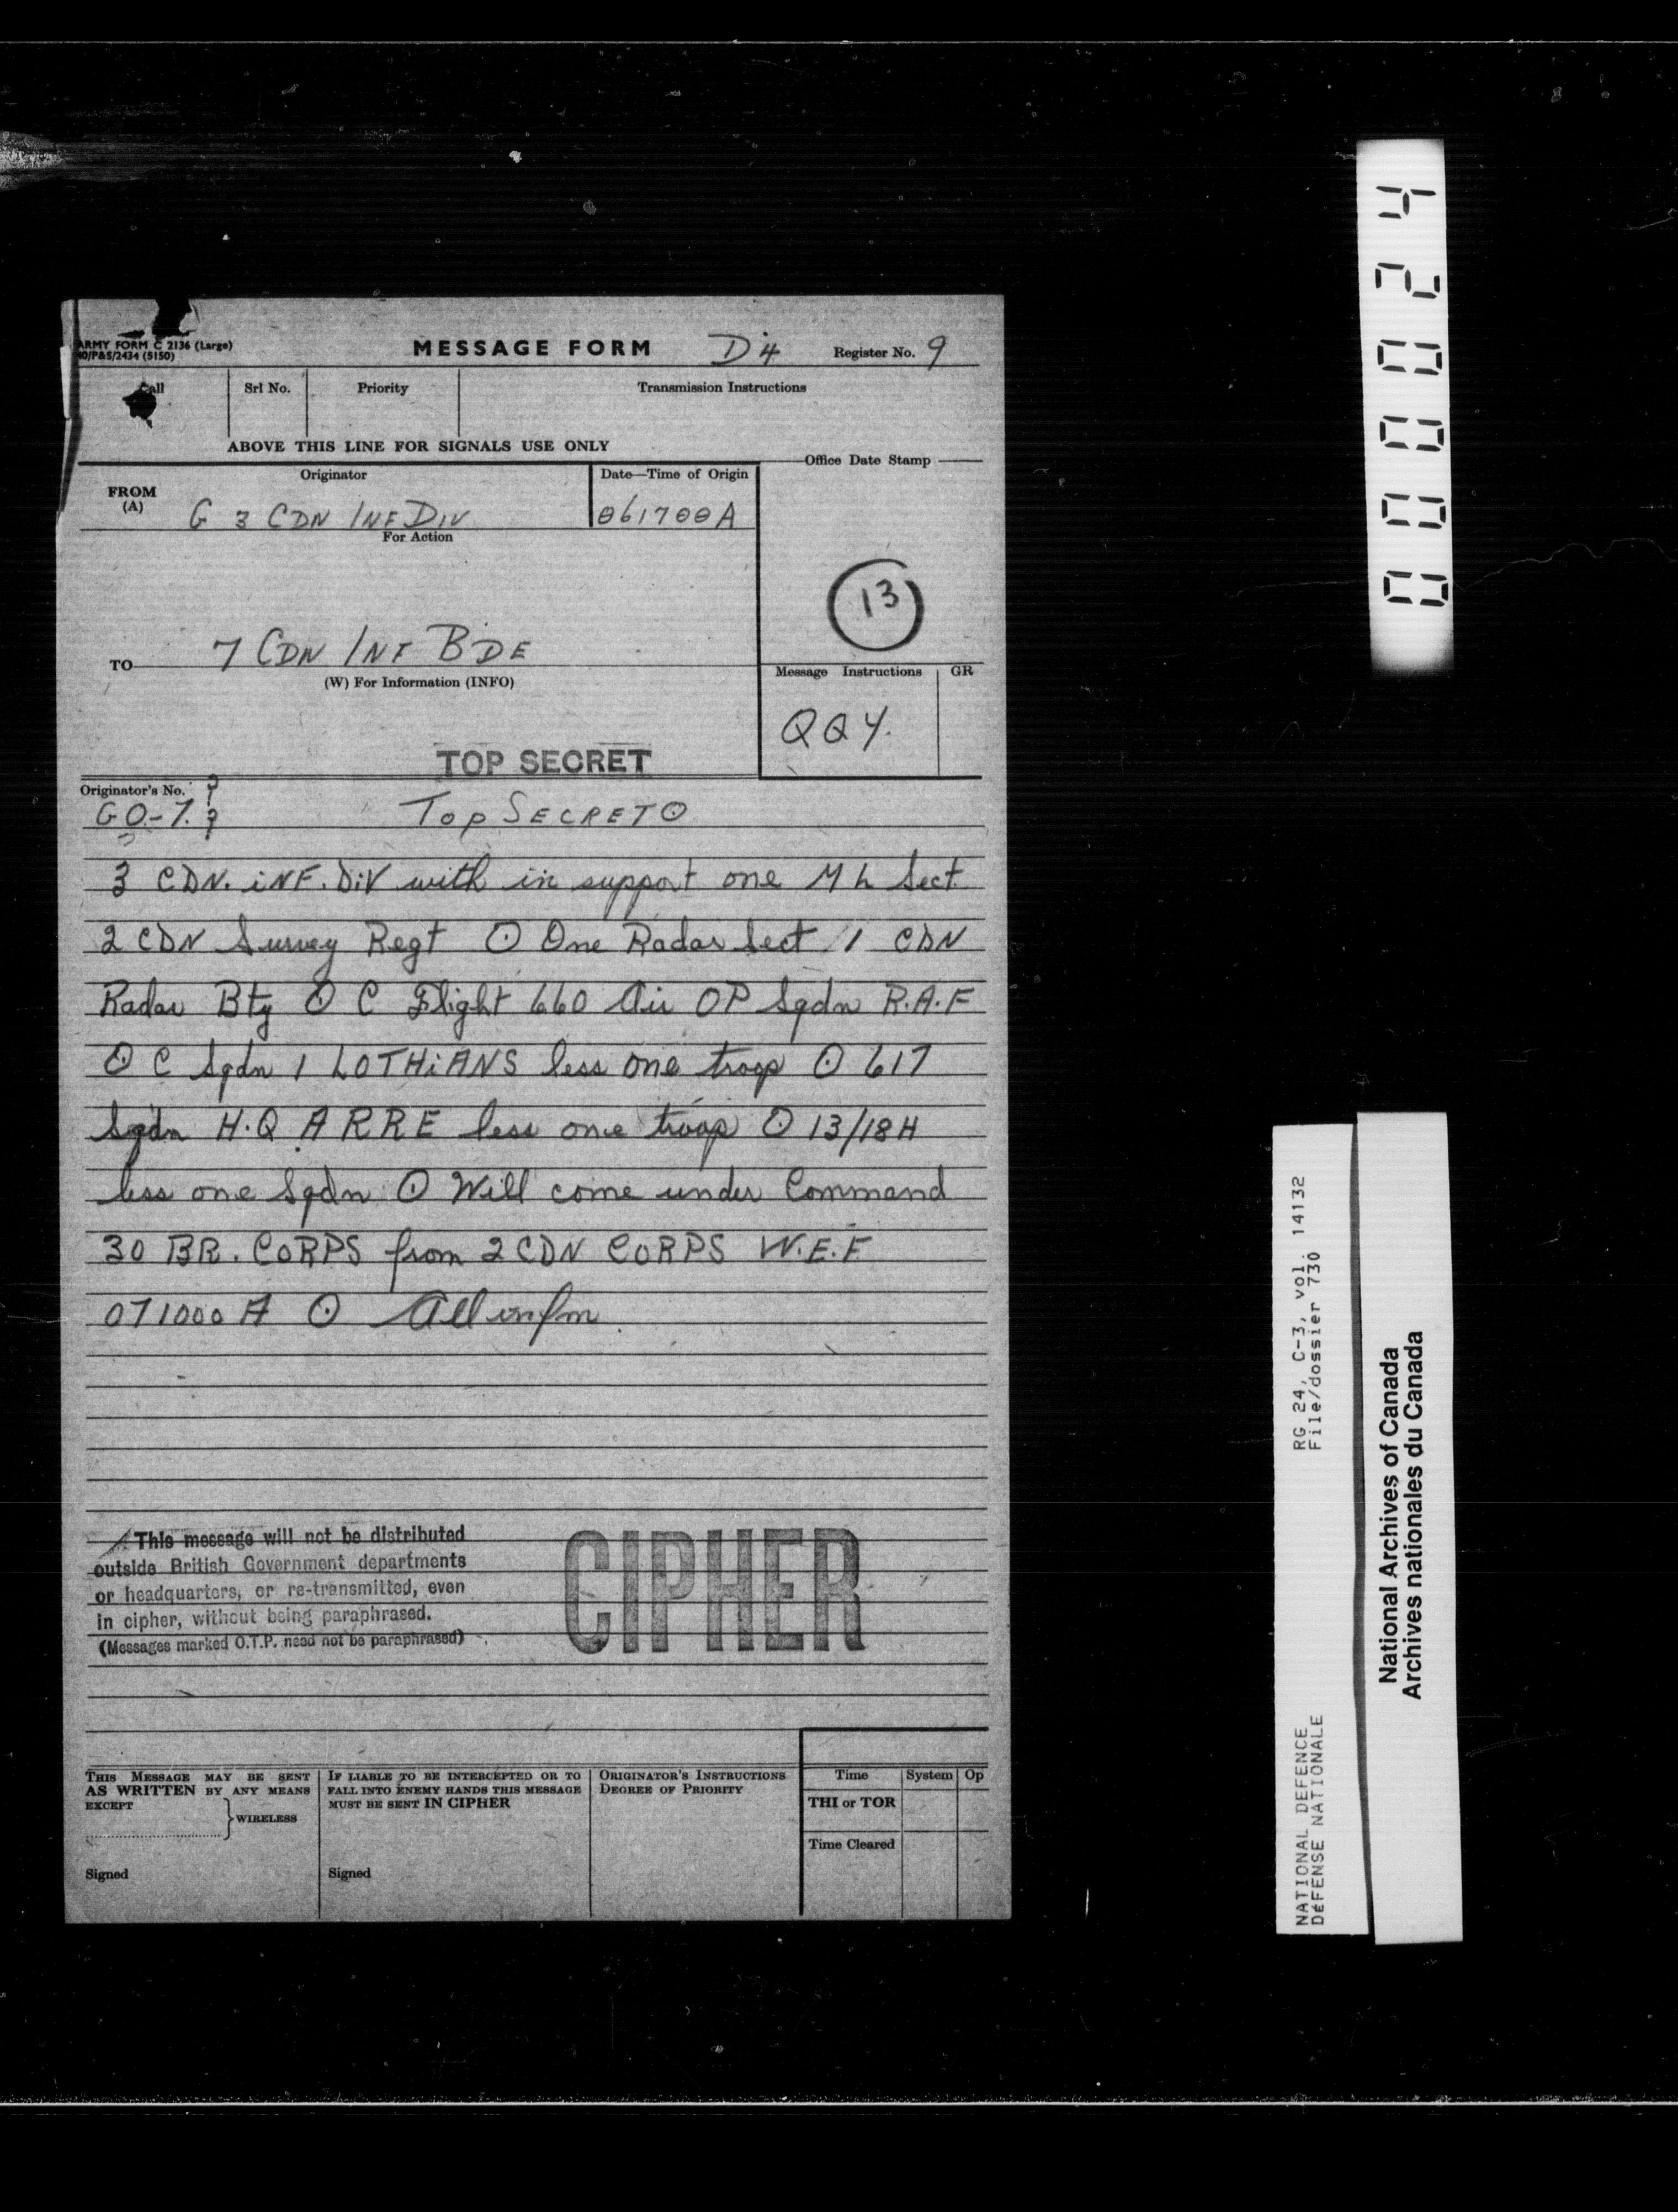 ARMY FORM C 2136 (Large)
/P&S/2434 (5150)
MESSAGE FORM D4 Register No. 9
Call Srl No. Priority Transmission Instructions
ABOVE THIS LINE FOR SIGNALS USE ONLY
Originator Date—Time of Origin Office Date Stamp
FROM
(A)
G 3 CDN INF DIV 061700A
For Action
13
TO 7 CDN INF BDE
(W) For Information (INFO)
Message Instructions GR
QQY.
TOP SECRET
Originator's No.
GO-7 ? ? TOP SECRET ⊙
3 CDN. INF. DIV with in support one M L Sect.
2 CDN Survey Regt ⊙ One Radar Sect 1 CDN
Radar Bty ⊙ C Flight 660 Air OP Sqdn R.A.F
⊙ C Sqdn 1 LOTHiANS less one troop ⊙ 617
Sqdn H.Q A R R E less one troop ⊙ 13/18 H
less one Sqdn ⊙ Will come under Command
30 BR. CORPS from 2 CDN CORPS W.E.F
071000 A ⊙ All infm
This message will not be distributed
outside British Government departments
or headquarters, or re-transmitted, even
in cipher, without being paraphrased.
(Messages marked O.T.P. need not be paraphrased)
CIPHER
THIS MESSAGE MAY BE SENT
AS WRITTEN BY ANY MEANS
EXCEPT
WIRELESS
Signed
IF LIABLE TO BE INTERCEPTED OR TO
FALL INTO ENEMY HANDS THIS MESSAGE
MUST BE SENT IN CIPHER
Signed
ORIGINATOR'S INSTRUCTIONS
DEGREE OF PRIORITY
Time System Op
THI or TOR
Time Cleared
000024
RG 24, C-3, vol. 14132
File/dossier 730
NATIONAL DEFENCE
DÉFENSE NATIONALE
National Archives of Canada
Archives nationales du Canada